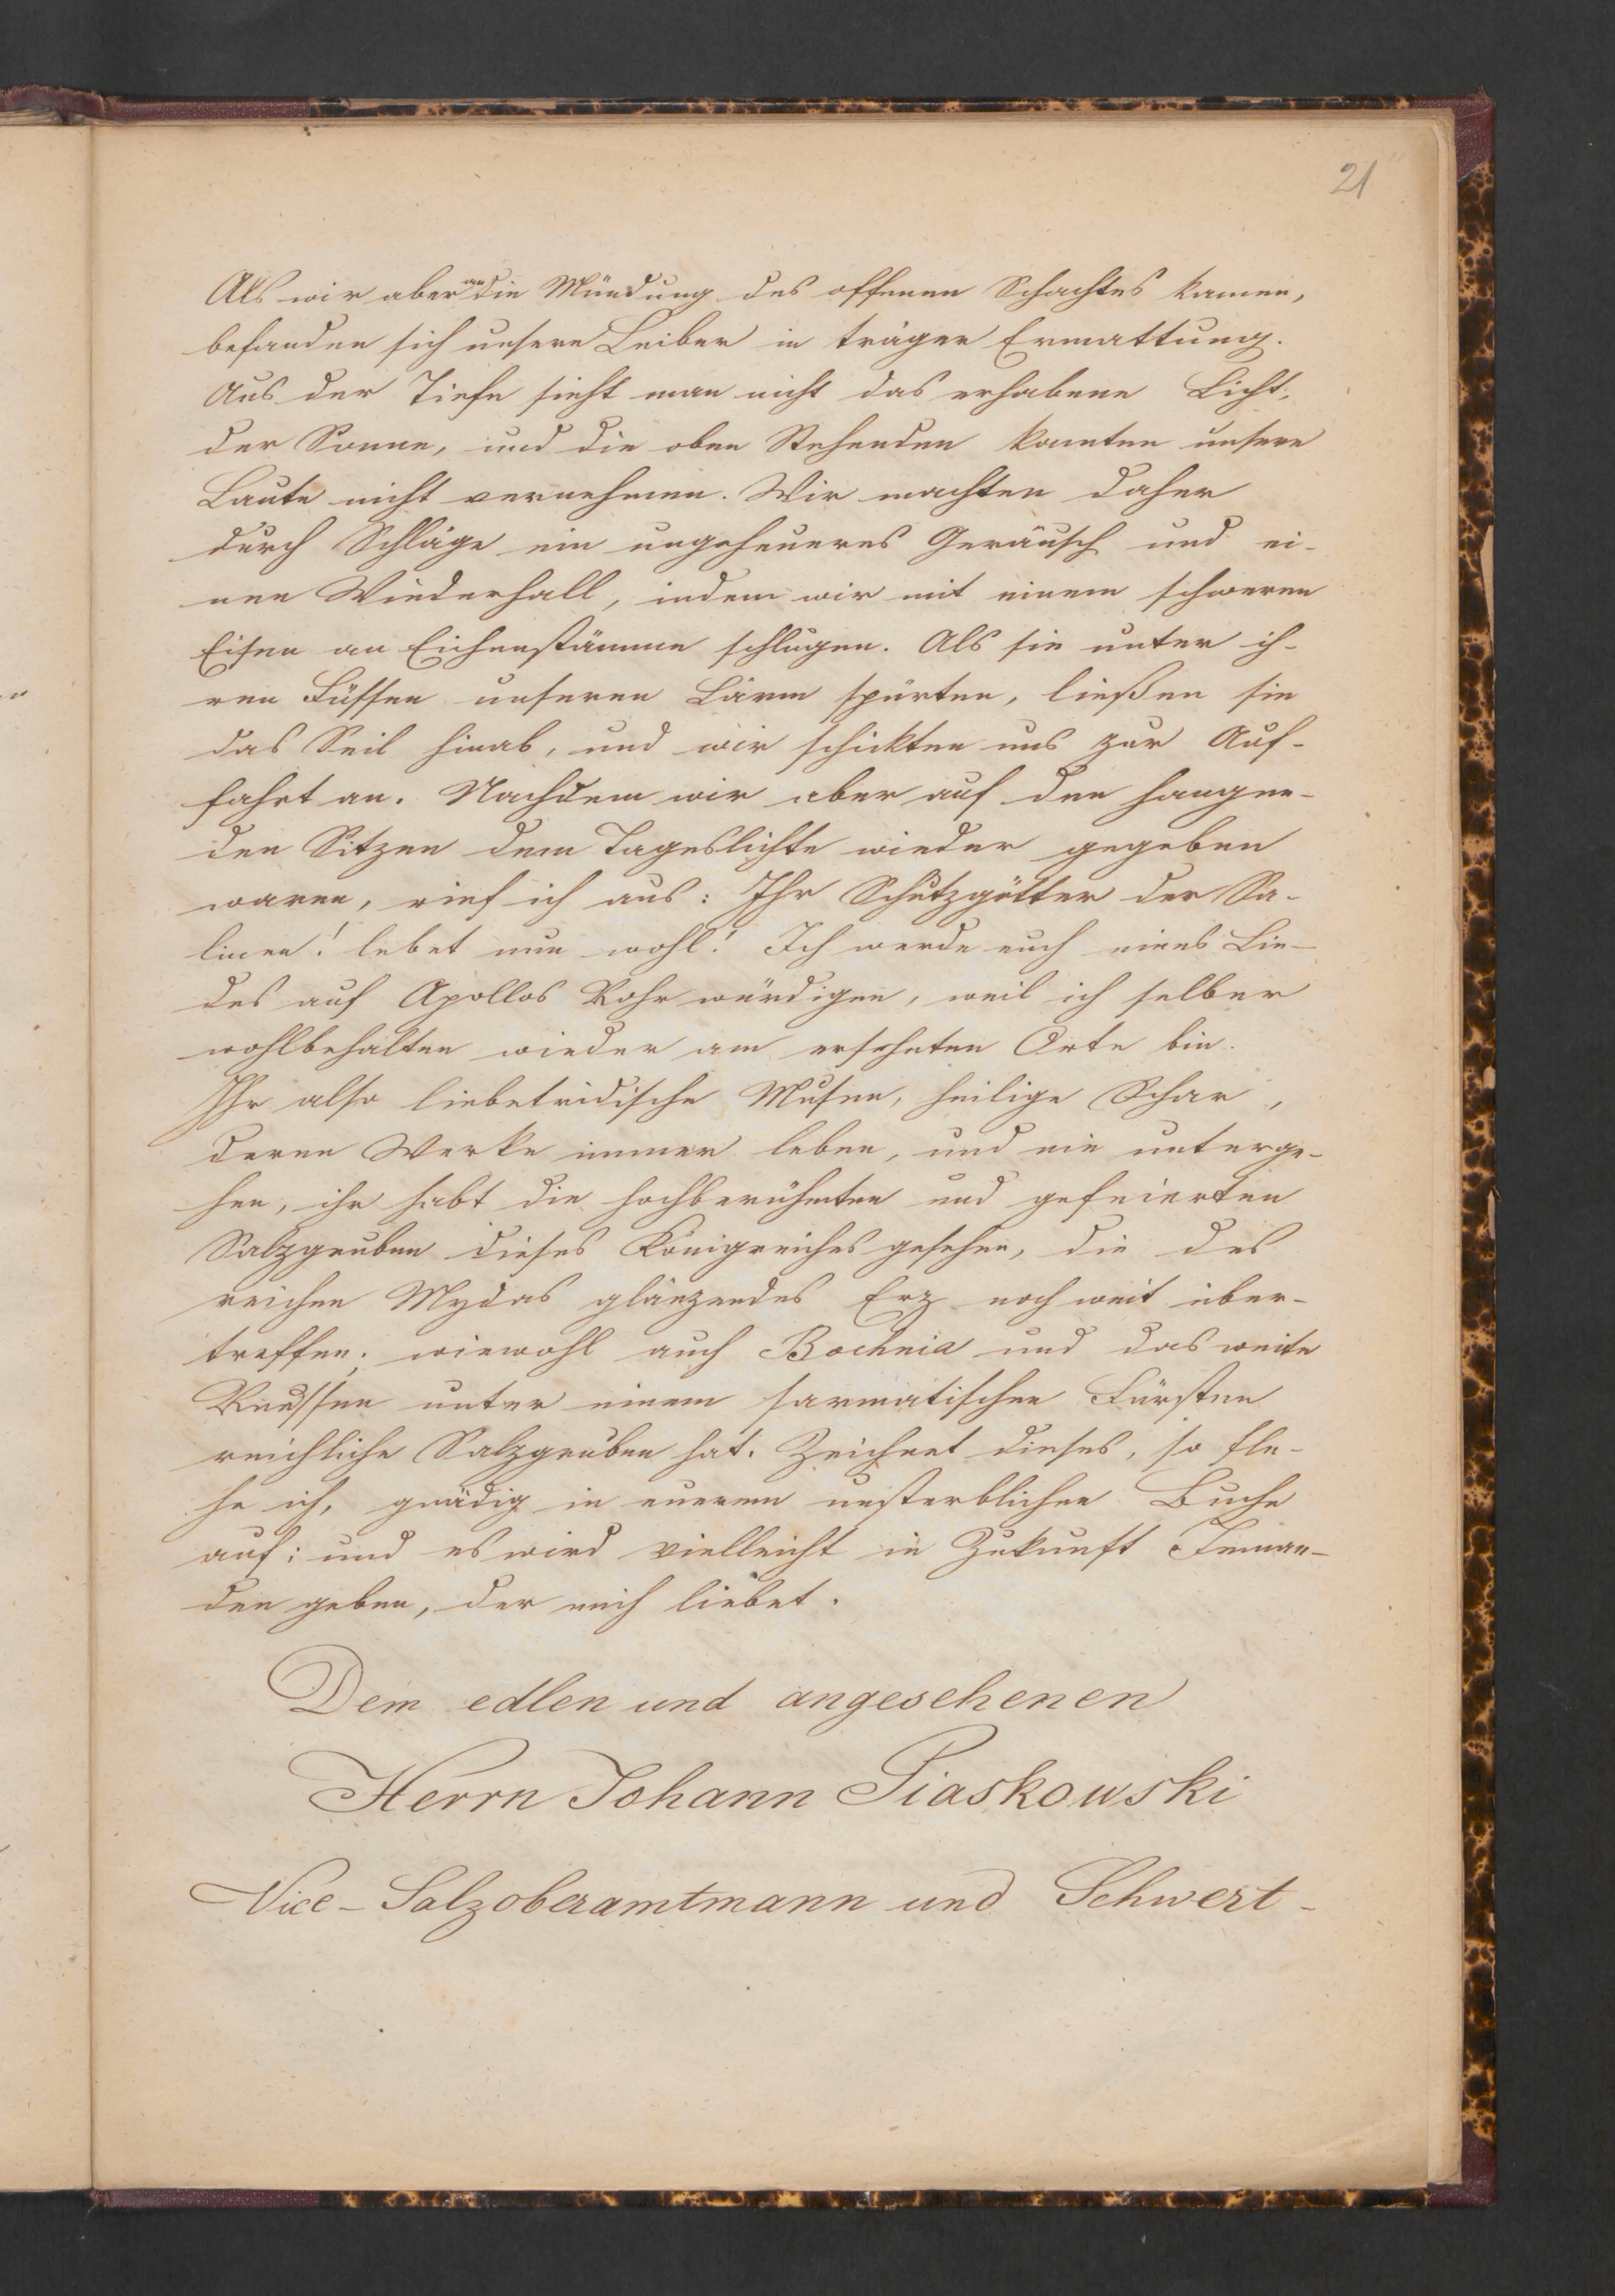 21
Als wir aber an die Mündung des offenen Schachtes kamen,
befanden sich unsere Leiber in träger Ermattung.
Aus der Tiefe sieht man nicht das erhabene Licht,
der Sonne, und die oben Stehenden konnten unsere
Laute nicht vernehmen. Wir machten daher
durch Schläge ein ungeheueres Geräusch und ei-
nen Wiederhall, indem wir mit einem schweren
Eisen an Eichenstämme schlugen. Als sie unter ih-
ren Füssen unseren Lärm spürten, ließen sie
das Seil hinab, und wir schickten uns zur Auf-
fahrt an. Nachdem wir aber auf den hangen-
den Sitzen dem Tageslichte wieder gegeben
waren, rief ich aus: Ihr Schutzgötter der Sa-
linen! lebet nun wohl! Ich werde euch eines Lie-
des auf Apollos Rohr würdigen, weil ich selber
wohlbehalten wieder am ersehnten Orte bin.
Ihr also liebetridische Musen, heilige Schar,
deren Werke immer leben, und nie unterge-
hen, ihr habt die hochberühmten und gefeierten
Salzgruben dieses Königreiches gesehen, die des
reichen Mydas glänzendes Erz noch weit über-
treffen; wiewohl auch Bochnia und das weite
Reussen unter einem sarmatischen Fürsten
reichliche Salzgruben hat. Zeichnet dieses, so fle-
he ich, gnädig in euerem unsterblichen Buche
auf: und es wird vielleicht in Zukunft Jeman-
den geben, der mich liebet.
Dem edlen und angesehenen
Herrn Johann Piaskowski
Vice-Salzoberamtmann und Schwert-